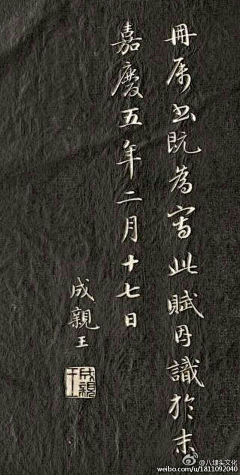 冊属书既為寫此賦因識於末
嘉慶五年二月十七日
成親王
@八雄头文化
weibo.com/u/1811092040